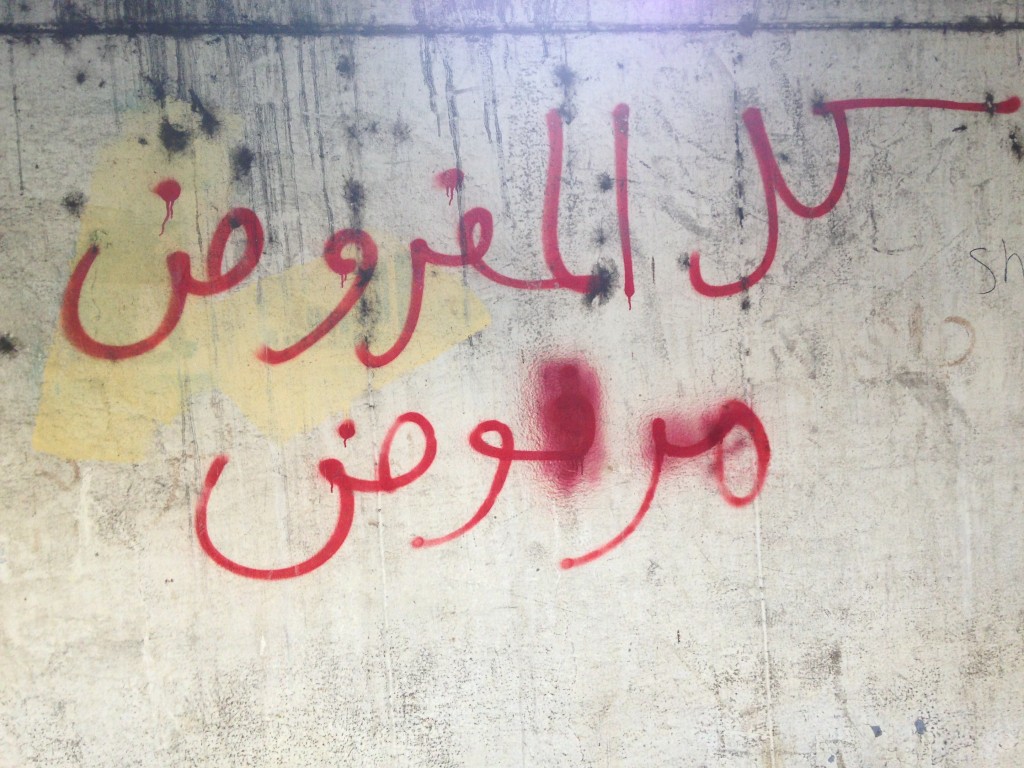 كل المفروض
مرفوض
sh